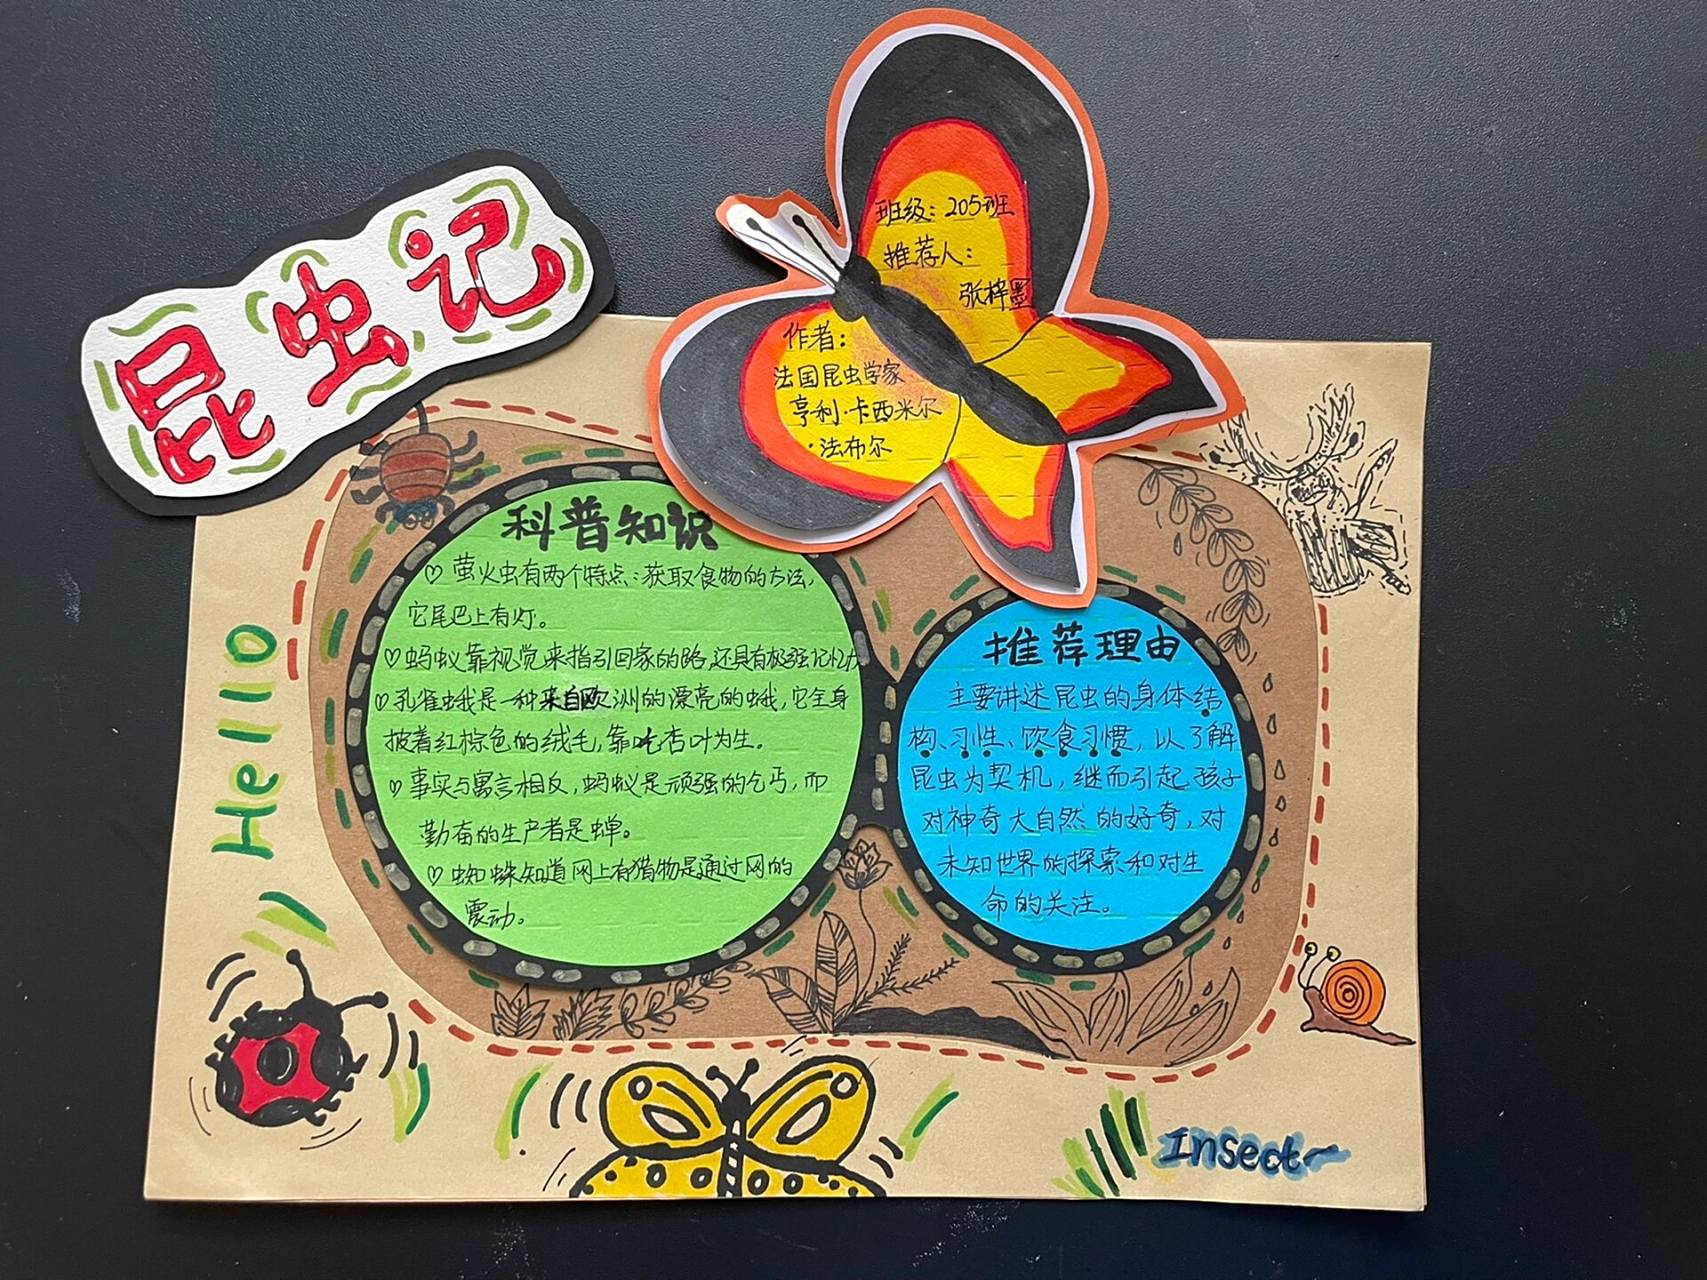 昆虫记
班级：205班
推荐人：
张梓墨
作者：
法国昆虫学家
亨利·卡西米尔
·法布尔
科普知识
♡ 萤火虫有两个特点：获取食物的方法，
它尾巴上有灯。
♡ 蚂蚁靠视觉来指引回家的路，还具有极强记忆力
♡ 孔雀蛾我是一种来自欧洲的漂亮的蛾，它全身
披着红棕色的绒毛，靠吃杏叶为生。
♡ 事实与寓言相反，蚂蚁是顽强的乞丐，而
勤奋的生产者是蝉。
♡ 蜘蛛知道网上有猎物是通过网的
震动。
推荐理由
主要讲述昆虫的身体结
构、习性、饮食习惯，以了解
昆虫为契机，继而引起孩子
对神奇大自然的好奇，对
未知世界的探索和对生
命的关注。
Hello
Insect